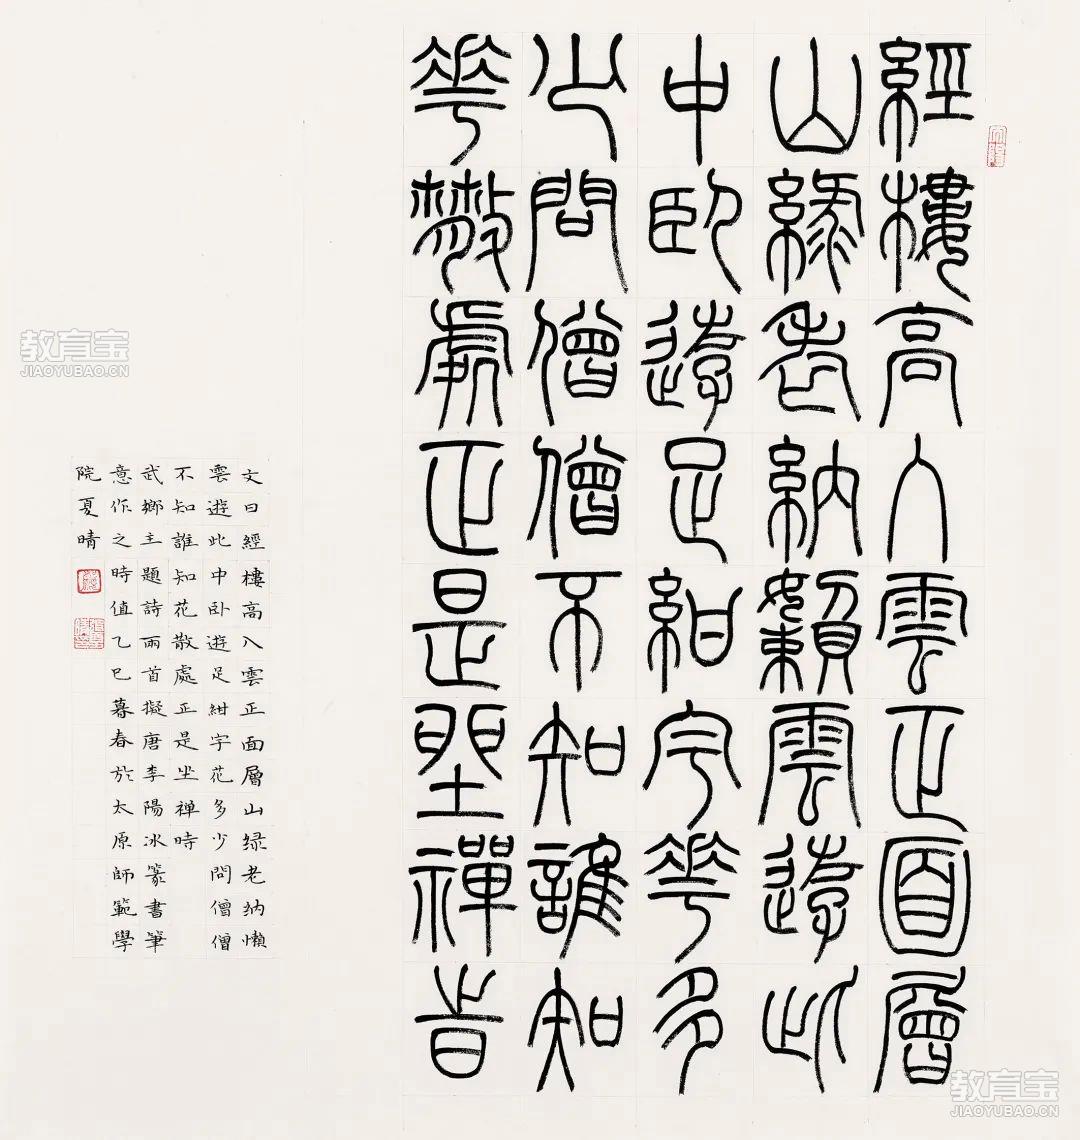 經樓高入雲正面層
山緑老納嬾雲遊此
中卧遊足紺宇花多
少問僧僧不知誰知
花散處正是坐禪時
文曰經樓高入雲正面層山緑老纳懒
雲遊此中卧遊足紺宇花多少問僧僧
不知誰知花散處正是坐禅時
武鄉主題詩兩首擬唐李陽冰篆書筆
意作之時值乙巳暮春於太原師範學
院夏晴
教育宝
JIAOYUBAO.CN
教育宝
JIAOYUBAO.CN